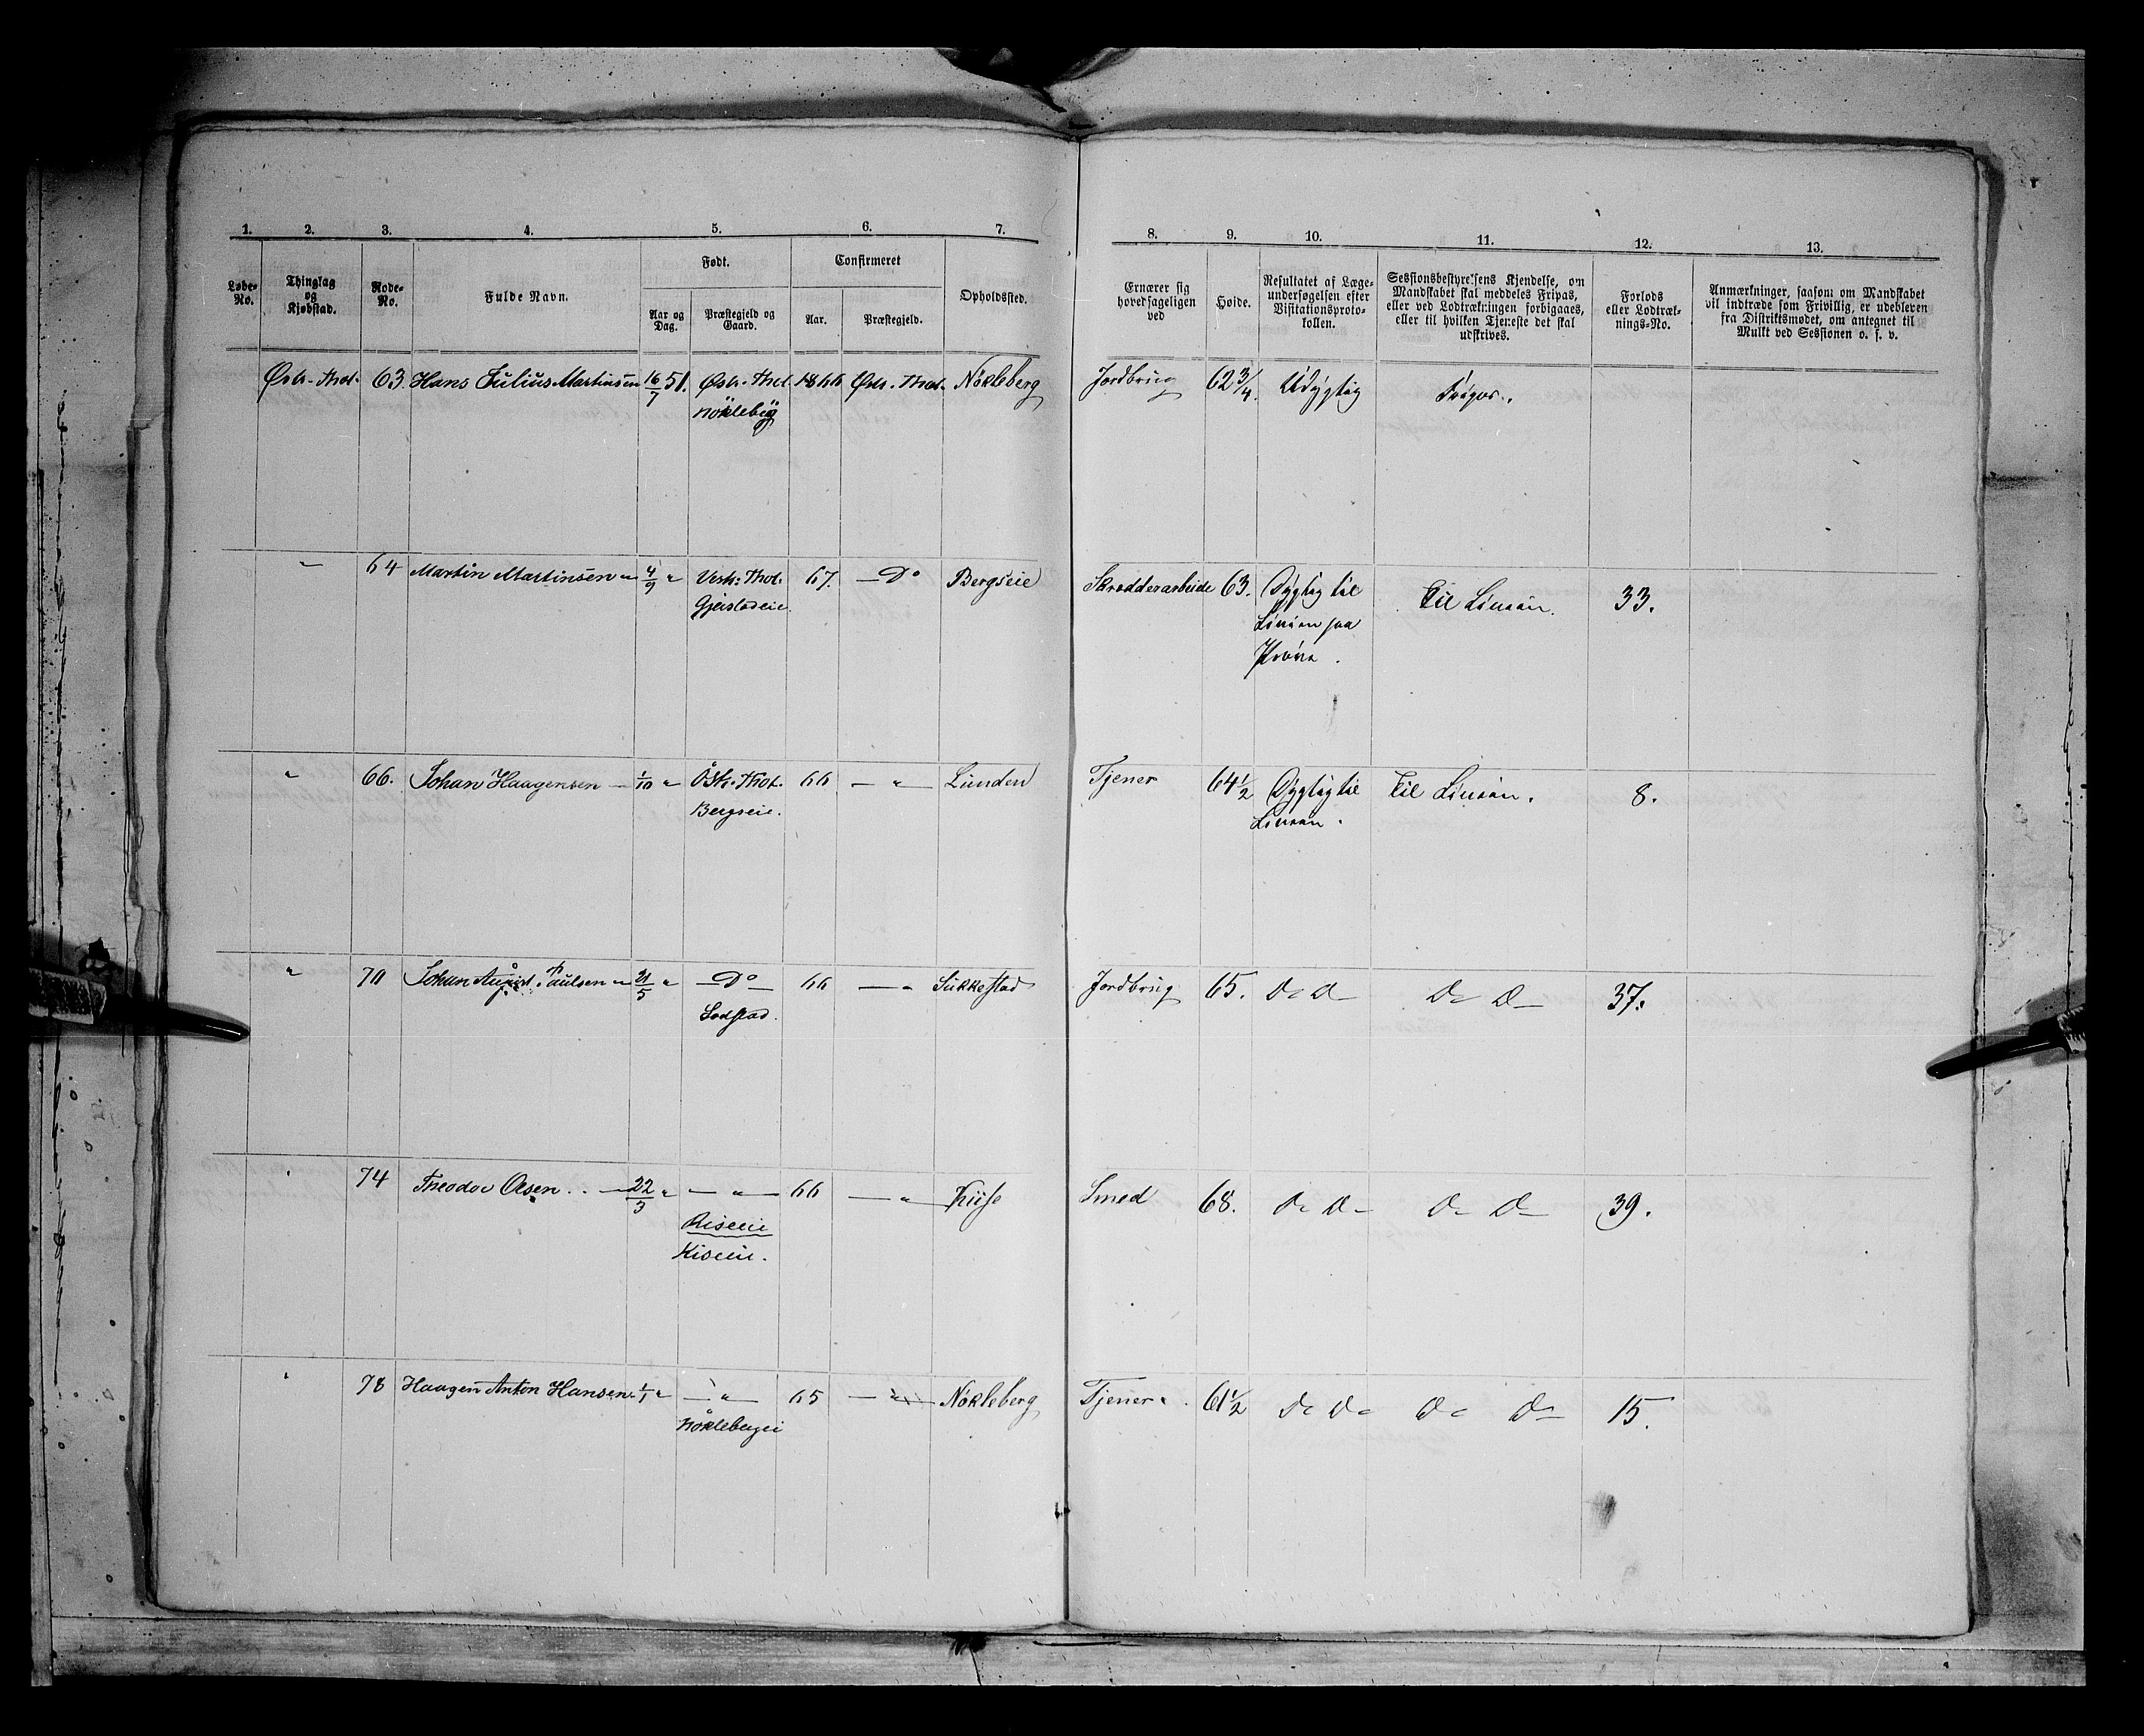 1. 2. 3. 4. 5. 6. 7. 8. 9. 10. 11. 12. 13.
Løbe-No.
Thinglag og Kjøbstad.
Rode-No.
Fulde Navn.
Født.
Aar og Dag.
Præstegjeld og Gaard.
Confirmeret
Aar.
Præstegjeld.
Opholdssted.
Ernærer sig hovedsageligen ved
Høide.
Resultatet af Læge-undersøgelsen efter Visitationsproto-kollen.
Sessionsbestyrelsens Kjendelse, om Mandskabet skal meddeles Fripas, eller ved Lodtrækningen forbigaaes, eller til hvilken Tjeneste det skal udskrives.
Forlods eller Lodtræk-nings-No.
Anmærkninger, saasom om Mandskabet vil indtræde som Frivillig, er udebleven fra Distriktsmødet, om antegnet til Mulkt ved Sessionen o. s. v.
Østr. Thot. 63. Hans Julius Martinsen 16/7 51. Østr. Thot. 1866 Østr. Thot. Nøkleberg Jordbrug 62 3/4. Udygtig Fripas.
Nøkleberg
" 64 Martin Martinsen 4/9 " Vestr: Thot. 67. — Do Bergseie Skrædderarbeide 63. Dygtig til Til Linien. 33.
Gjeistadeie. Linien paa
Prøve.
" 66. Johan Haagensen 1/10 " Østr. Thot. 66 — " — Lunden Tjener 64 1/2 Dygtig til Til Linien. 8.
Bergseie. Linien.
" 70 Johan August Paulsen 21/5 " — Do — 66 — " Sukkestad Jordbrug 65. Do Do Do Do 37.
Sodstad.
" 74 Theodor Olsen 22/3 " — " — 66 — " Kiise Smed 68. Do Do Do Do 39.
Riseeie
Kiseeie.
" 78 Haagen Anton Hansen 1/1 " — " 65 — " — Nøkleberg Tjener. 61 1/2 Do Do Do Do 15.
Nøklebergei